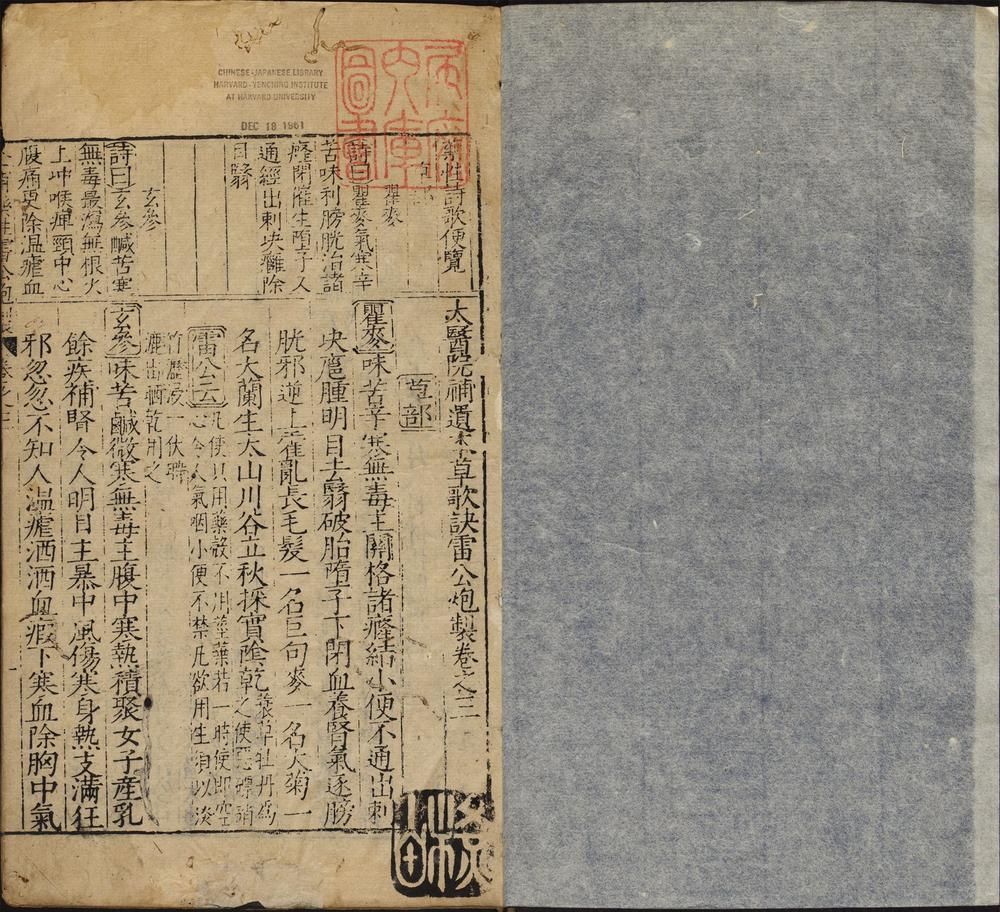 CHINESE-JAPANESE LIBRARY
HARVARD-YENCHING INSTITUTE
AT HARVARD UNIVERSITY
DEC 18 1961
藥性詩歌便覽
瞿麥
詩曰瞿麥氣寒辛
苦味利膀胱治諸
癃閉催生墮子人
通經出刺決癰除
目翳
玄參
詩曰玄參鹹苦寒
無毒最瀉無根火
上冲喉痺頸中心
腹痛更除温瘧血
太醫院補遺本草歌訣雷公炮製卷之三
草部
瞿麥味苦辛寒無毒主關格諸癃結小便不通出刺
决癰腫明目去翳破胎墮子下閉血養腎氣逐膀
胱邪逆止霍亂長毛髮一名巨句麥一名大菊一
名大蘭生太山川谷立秋採實陰乾蓑草牡丹爲
之使惡螵蛸
雷公云凡使只用藥殼不用莖葉若一時使即空
心令人氣咽小便不禁凡欲用生須以淡
竹瀝浸一伏時
漉出晒乾用之
玄參味苦鹹微寒無毒主腹中寒熱積聚女子產乳
餘疾補腎令人明目主暴中風傷寒身熱支滿狂
邪忽忽不知人温瘧洒洒血瘕下寒血除胸中氣